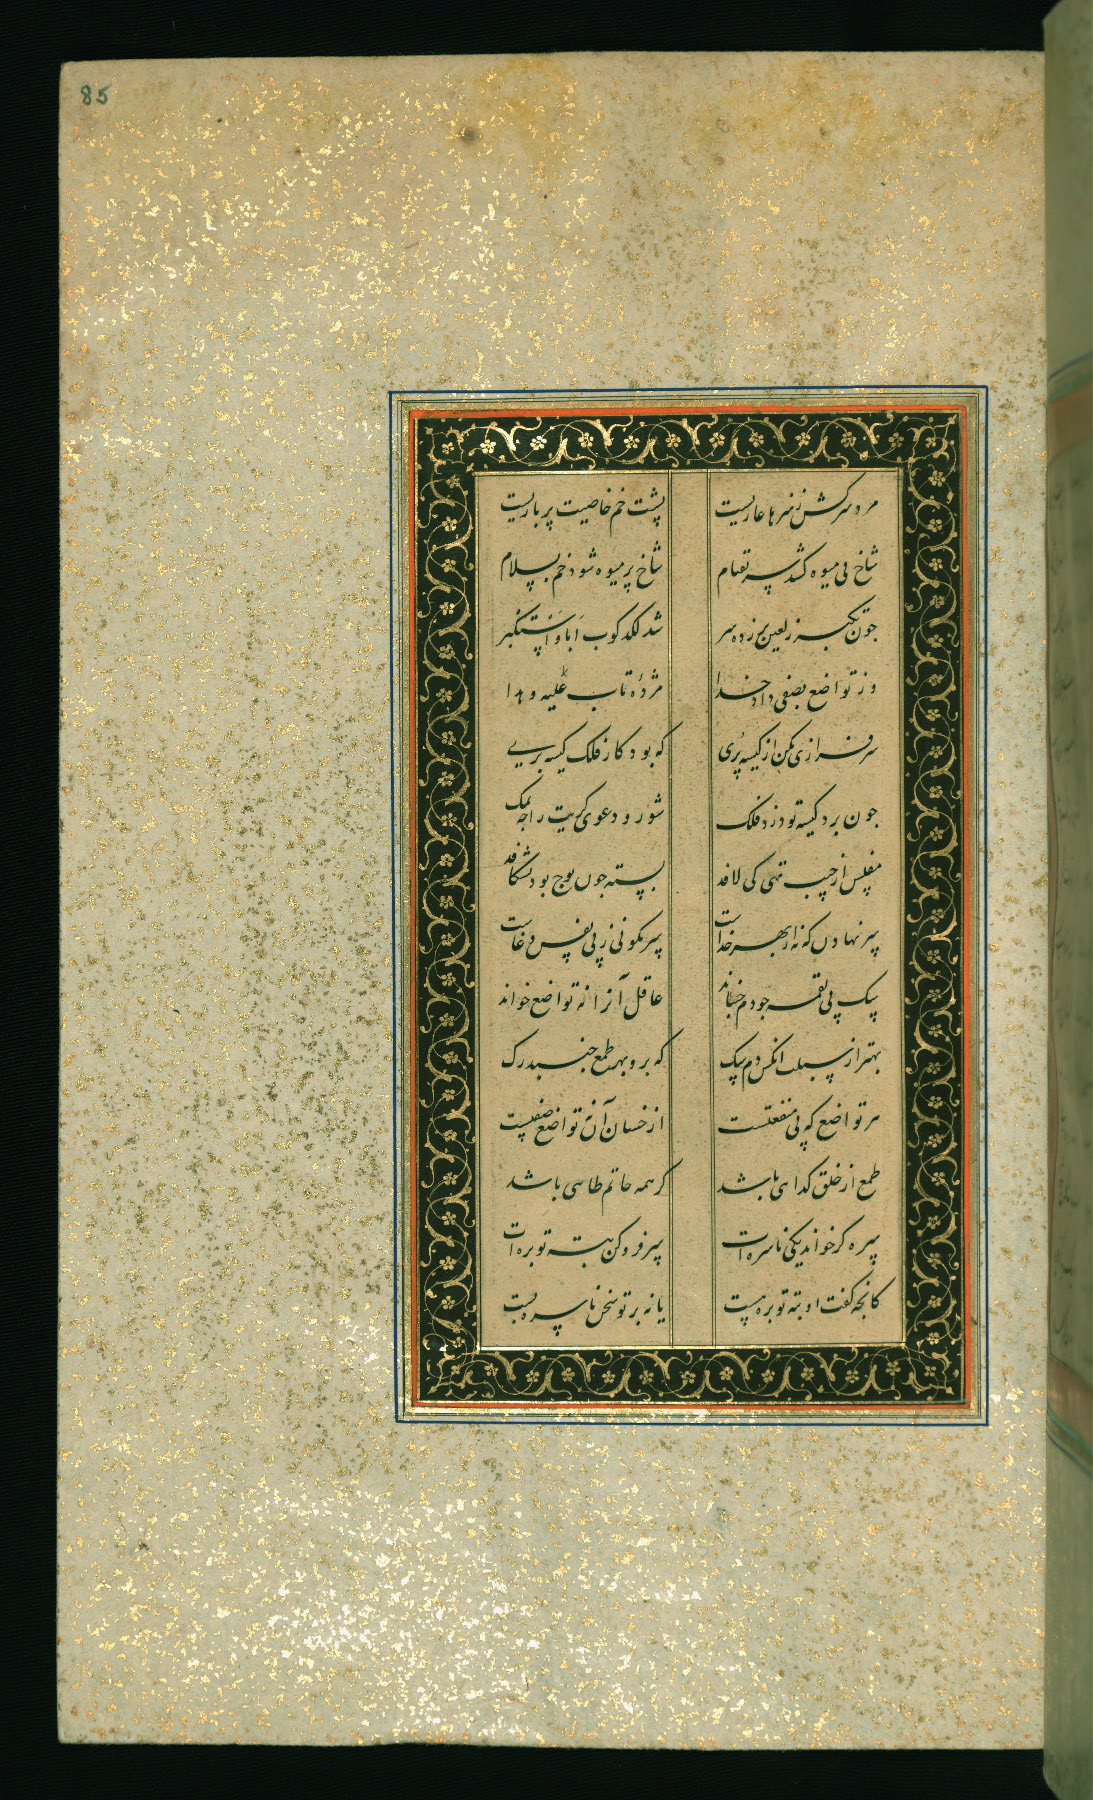 85
مرد سرکش ز هنرها عاریست پشت خم خاصیت پر باریست
شاخ بی میوه کشد سر بقیام شاخ پر میوه شود خم بسلام
جون تکبر ز لعین بر زده سر شد لکدکوب اَبا وَاستکبر
وز تواضع بصفی داد خدا مژدهٔ تاب علیه و هدا
سرفرازی مکن از کیسه پُری که بود کار فلک کیسه بری
جون برد کیسه تو دزد فلک شور و دعوی کریت را جه نمک
مفلس از جیب تهی کی لافد پسته جون پوج بود نشکافد
سر نهادن که نه از بهر خداست سرنکونی ز پی نفس دغاست
سک پی لقمه جو دم جنباند عاقل آنرا نه تواضع خواند
بهتر از سبلت انکس دم سک که برو بهر طمع جنبد رک
هر تواضع که پی منفعتست از خسان آن نه تواضع صفتست
طمع از خلق کدایی باشد کر همه حاتم طایی باشد
سره کر خواند یکی ناسره ات سر فرو کن بته توبره ات
کانجه کفت او بته توبره هست یا نه بر تو سخن ناسره بست